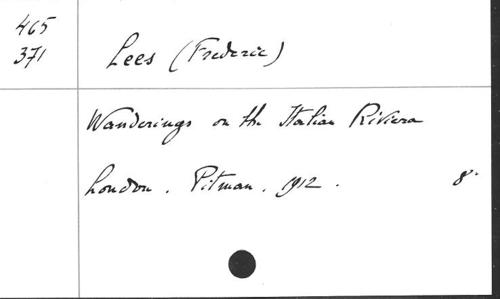 465
371
Lees (Frederic)
Wanderings on the Italian Riviera
London. Pitman. 1912. 8°